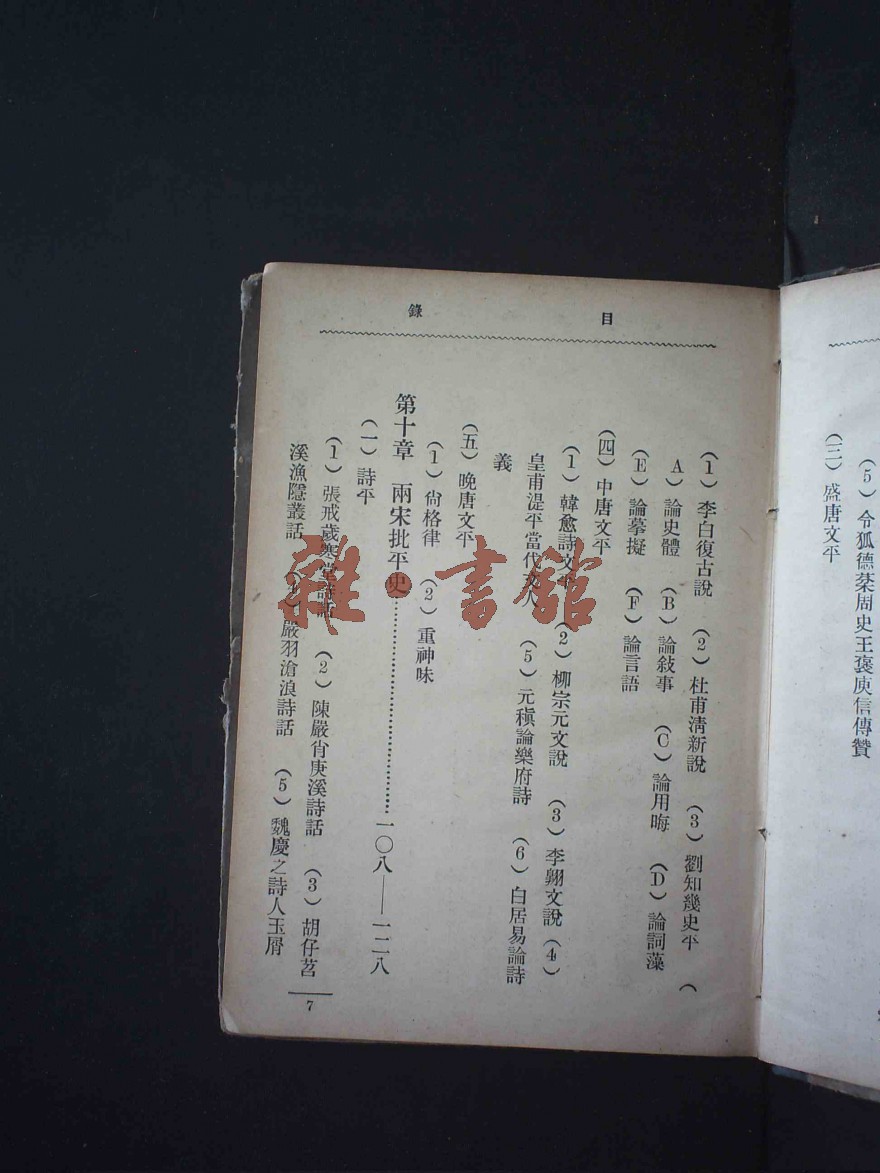 (5)令狐德棻周史王褒庾信傳贊
(三)盛唐文平
目錄
(1)李白復古說 (2)杜甫淸新說 (3)劉知幾史平 (
A)論史體 (B)論敍事 (C)論用晦 (D)論詞藻
(E)論摹擬 (F)論言語
(四)中唐文平
(1)韓愈詩文平 (2)柳宗元文說 (3)李翶文說 (4)
皇甫湜平當代文人 (5)元稹論樂府詩 (6)白居易論詩
義
(五)晚唐文平
(1)尙格律 (2)重神味
第十章 兩宋批平史……一〇八——一二八
(一)詩平
(1)張戒歲寒堂詩話 (2)陳嚴肖庚溪詩話 (3)胡仔苕
溪漁隱叢話 (4)嚴羽滄浪詩話 (5)魏慶之詩人玉屑
7
雜·書館